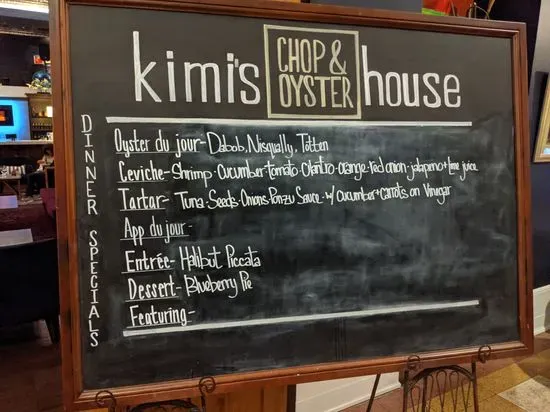 kimi's CHOP & OYSTER house
DINNER SPECIALS
Oyster du jour- Dabob, Nisqually, Totten
Ceviche- Shrimp-cucumber-tomato-cilantro-orange-red onion-jalapeno+lime juice
Tartar- Tuna-Seeds-Onions-Ponzu Sauce-w/ cucumber+carrots on Vinegar
App du jour-
Entrée- Halibut Piccata
Dessert- Blueberry Pie
Featuring-